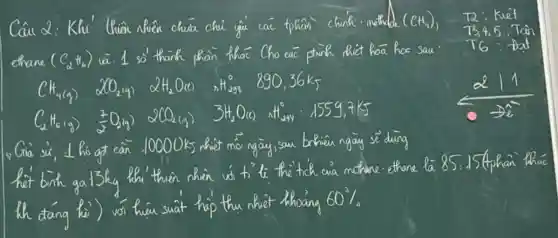 Câu 2: Khí thiên nhiên chứa chủ yếu các tphần chính: methane (CH4),
ethane (C2H6) và 1 số thành phần khác. Cho các ptrình nhiệt hóa học sau:
CH4(g) 2O2(g) 2H2O(l) ΔH°298 890,36 kJ
C2H6(g) 7/2 O2(g) 2CO2(g) 3H2O(l) ΔH°298 - 1559,7 kJ
Giả sử, 1 hộ gđ cần 10000 kJ nhiệt mỗi ngày, sau bnhiêu ngày sẽ dùng
hết bình ga 13kg khí thiên nhiên với tỉ lệ thể tích của methane: ethane là 85:15 (tphần khác
kh đáng kể) với hiệu suất hấp thụ nhiệt khoảng 60%.
T2: Kiệt
T3,4,5: Tân
T6: Đạt
2 | 1
Đề